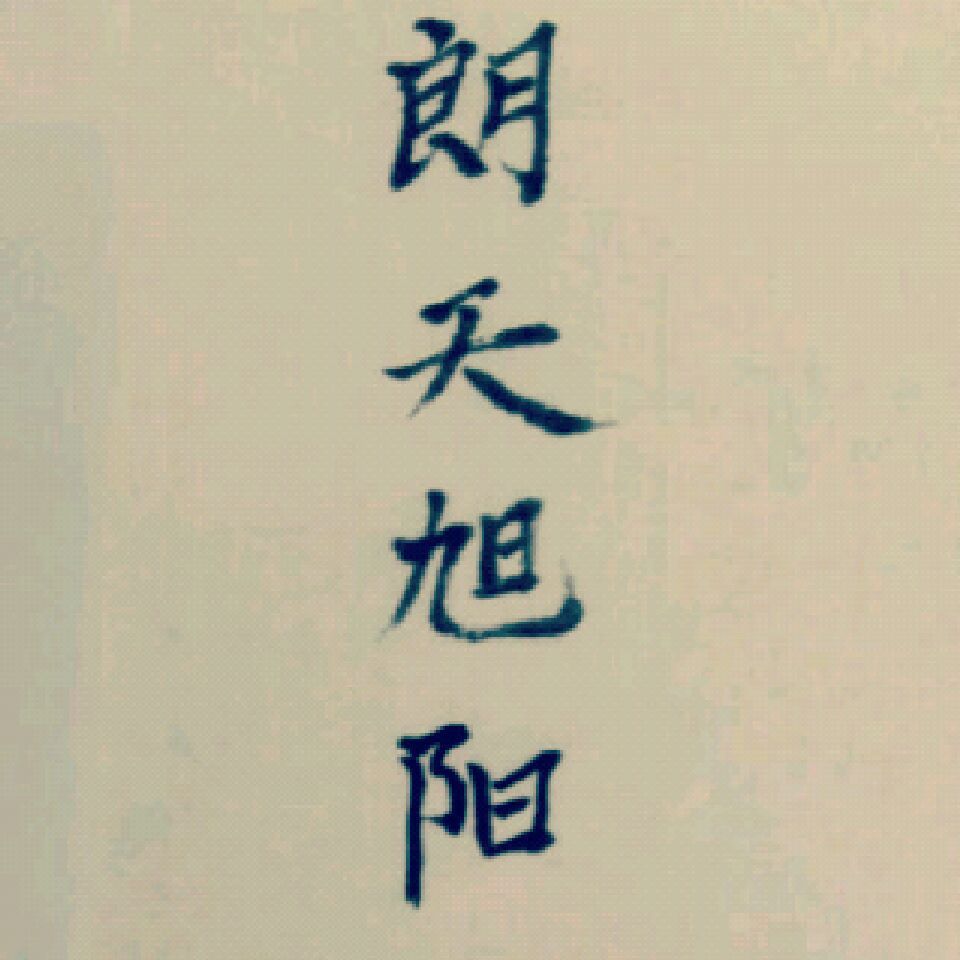 朗天旭阳